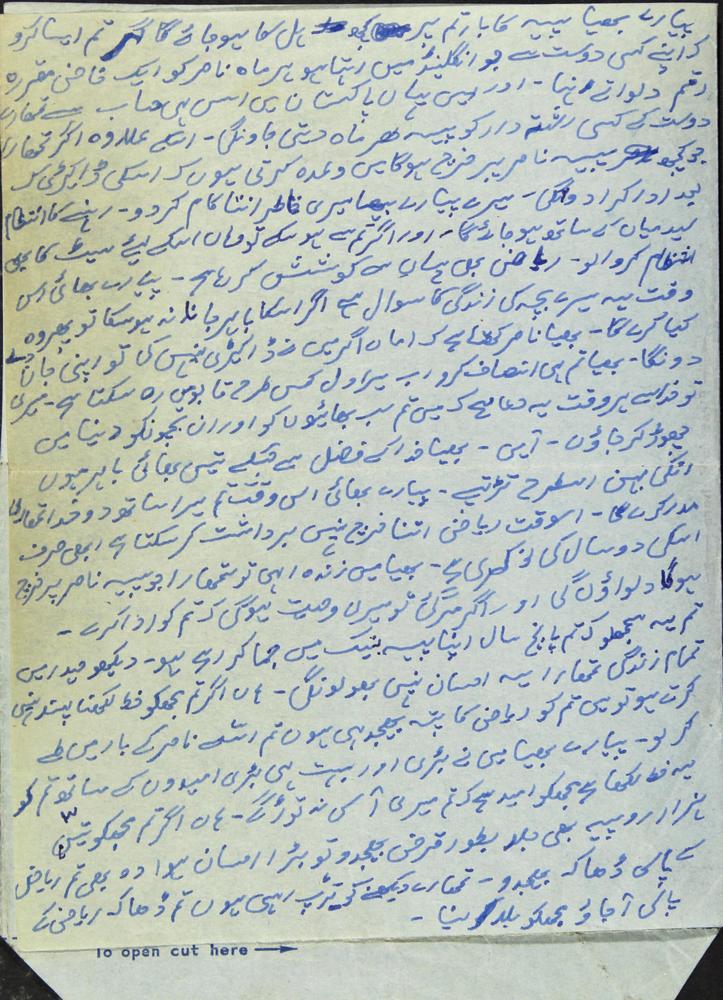 پیارے بھیا پیسہ کا بار تم پر کچھ ہلکا ہو جائے گا اگر تم ایسا کرو
کہ اپنے کسی دوست سے جو انگلینڈ میں رہتا ہو ہر ماہ ناصر کو ایک خاص مقررہ
رقم دلواتے رہنا - اور میں یہاں پاکستان میں اسی حساب سے تمہارے
دوست کے کسی رشتہ دار کو پیسہ ہر ماہ دیتی جاونگی - اسکے علاوہ اگر تمھارا
جو کچھ پیسہ ناصر پر خرچ ہوگا میں وعدہ کرتی ہوں کہ اسکی ڈاکٹری کے
بعد ادا کرا دونگی - میرے پیارے بھیا میری خاطر اتنا کام کر دو - رہنے کا انتظام
سید میاں کے ساتھ ہو جائے گا - اور اگر تم سے ہو سکے تو وہاں اسکے لیئے سیٹ کا بھی
انتظام کروالو - ریاض بھی یہاں سے کوشش کر رہا ہے - پیارے بھائی اس
وقت یہ میرے بچہ کی زندگی کا سوال ہے اگر اسکا باہر جانا نہ ہو سکا تو پھر وہ
کیا کرے گا - بھیا ناصر کہتا ہے کہ اماں اگر میں نے ڈاکٹری نہیں کی تو اپنی جان دے
دونگا - بھیا تم ہی انصاف کرو اب میرا دل کس طرح قابو میں رہ سکتا ہے - میری
تو خدا سے ہر وقت یہ دعا ہے کہ میں تم سب بھائیوں کو اور ان بچونکو دنیا میں
چھوڑ کر جاؤں - آمین - بھیا خدا کے فضل سے جسکے تین بھائی باہر ہوں
انکی بہن اسطرح تڑپے - پیارے بھائی اس وقت تم میرا ساتھ دو خدا تمھاری
مدد کرے گا - اسوقت ریاض اتنا خرچ نہیں برداشت کر سکتا ہے ابھی صرف
اسکی دو سال کی نوکری ہے - بھیا میں زندہ رہی تو تمھارا جو پیسہ ناصر پر خرچ
ہوگا دلواؤں گی اور اگر مر گئی تو میری وصیت ہوگی کہ تم کو ادا کرے -
تم یہ سمجھ لو کہ تم پانچ سال اپنا پیسہ بنیک میں جما کر رہے ہو - دیکھو حیدر میں
تمام زندگی تمھارا یہ احسان نہیں بھولونگی - ہاں اگر تم مجھکو خط لکھنا پسند نہیں
کرتے ہو تو میں تم کو ریاض کا پتہ بھیج رہی ہوں تم اس سے ناصر کے بار میں طے
کر لو - پیارے بھیا میں نے بڑی اور بہت ہی بڑی امیدوں کے ساتھ تم کو
یہ خط لکھا ہے مجھکو امید ہے کہ تم میری آس نہ توڑو گے - ہاں اگر تم مجھکو تین
ہزار روپیہ بھی بطور قرض بھیجدو تو بڑا احسان ہوگا وہ بھی تم ریاض
کے پاس ڈھاکہ بھیجدو - تمھارے دیکھنے کو تڑپ رہی ہوں تم ڈھاکہ ریاض کے
پاس آ جاؤ مجھکو بلا لینا -
To open cut here